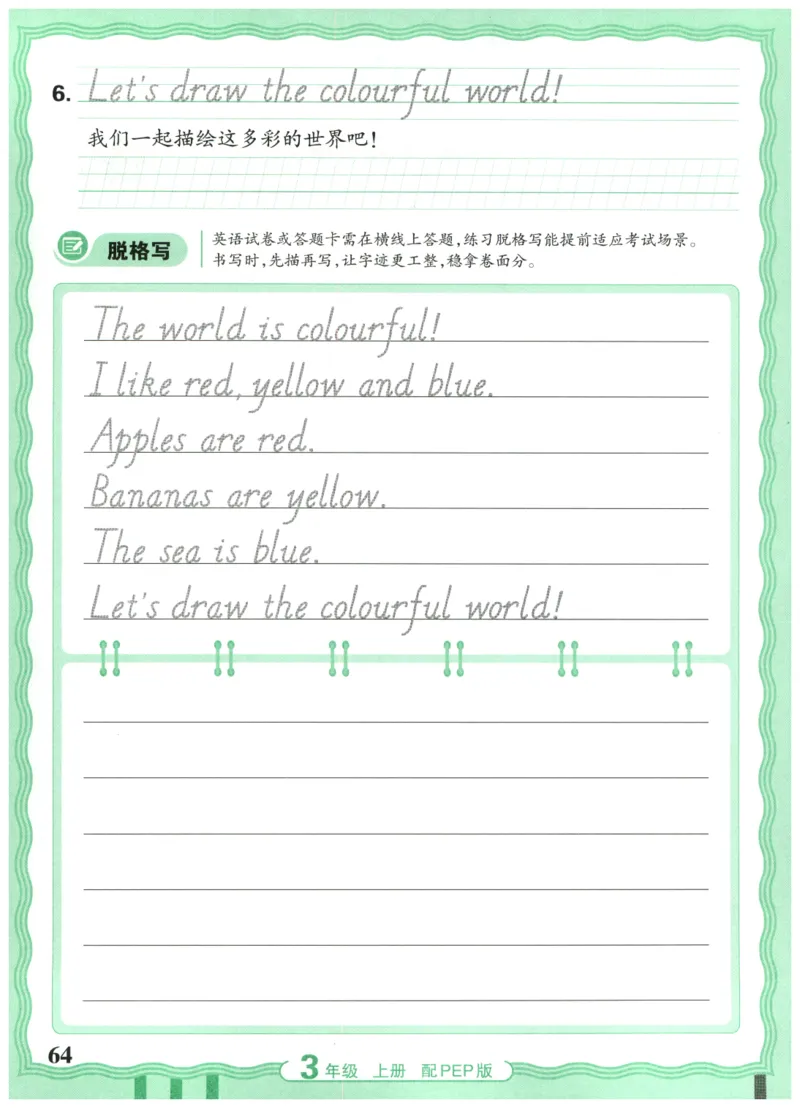 6. Let's draw the colourful world!
我们一起描绘这多彩的世界吧!
脱格写
英语试卷或答题卡需在横线上答题,练习脱格写能提前适应考试场景。
书写时,先描再写,让字迹更工整,稳拿卷面分。
The world is colourful!
I like red, yellow and blue.
Apples are red.
Bananas are yellow.
The sea is blue.
Let's draw the colourful world!
64
3年级 上册 配PEP版